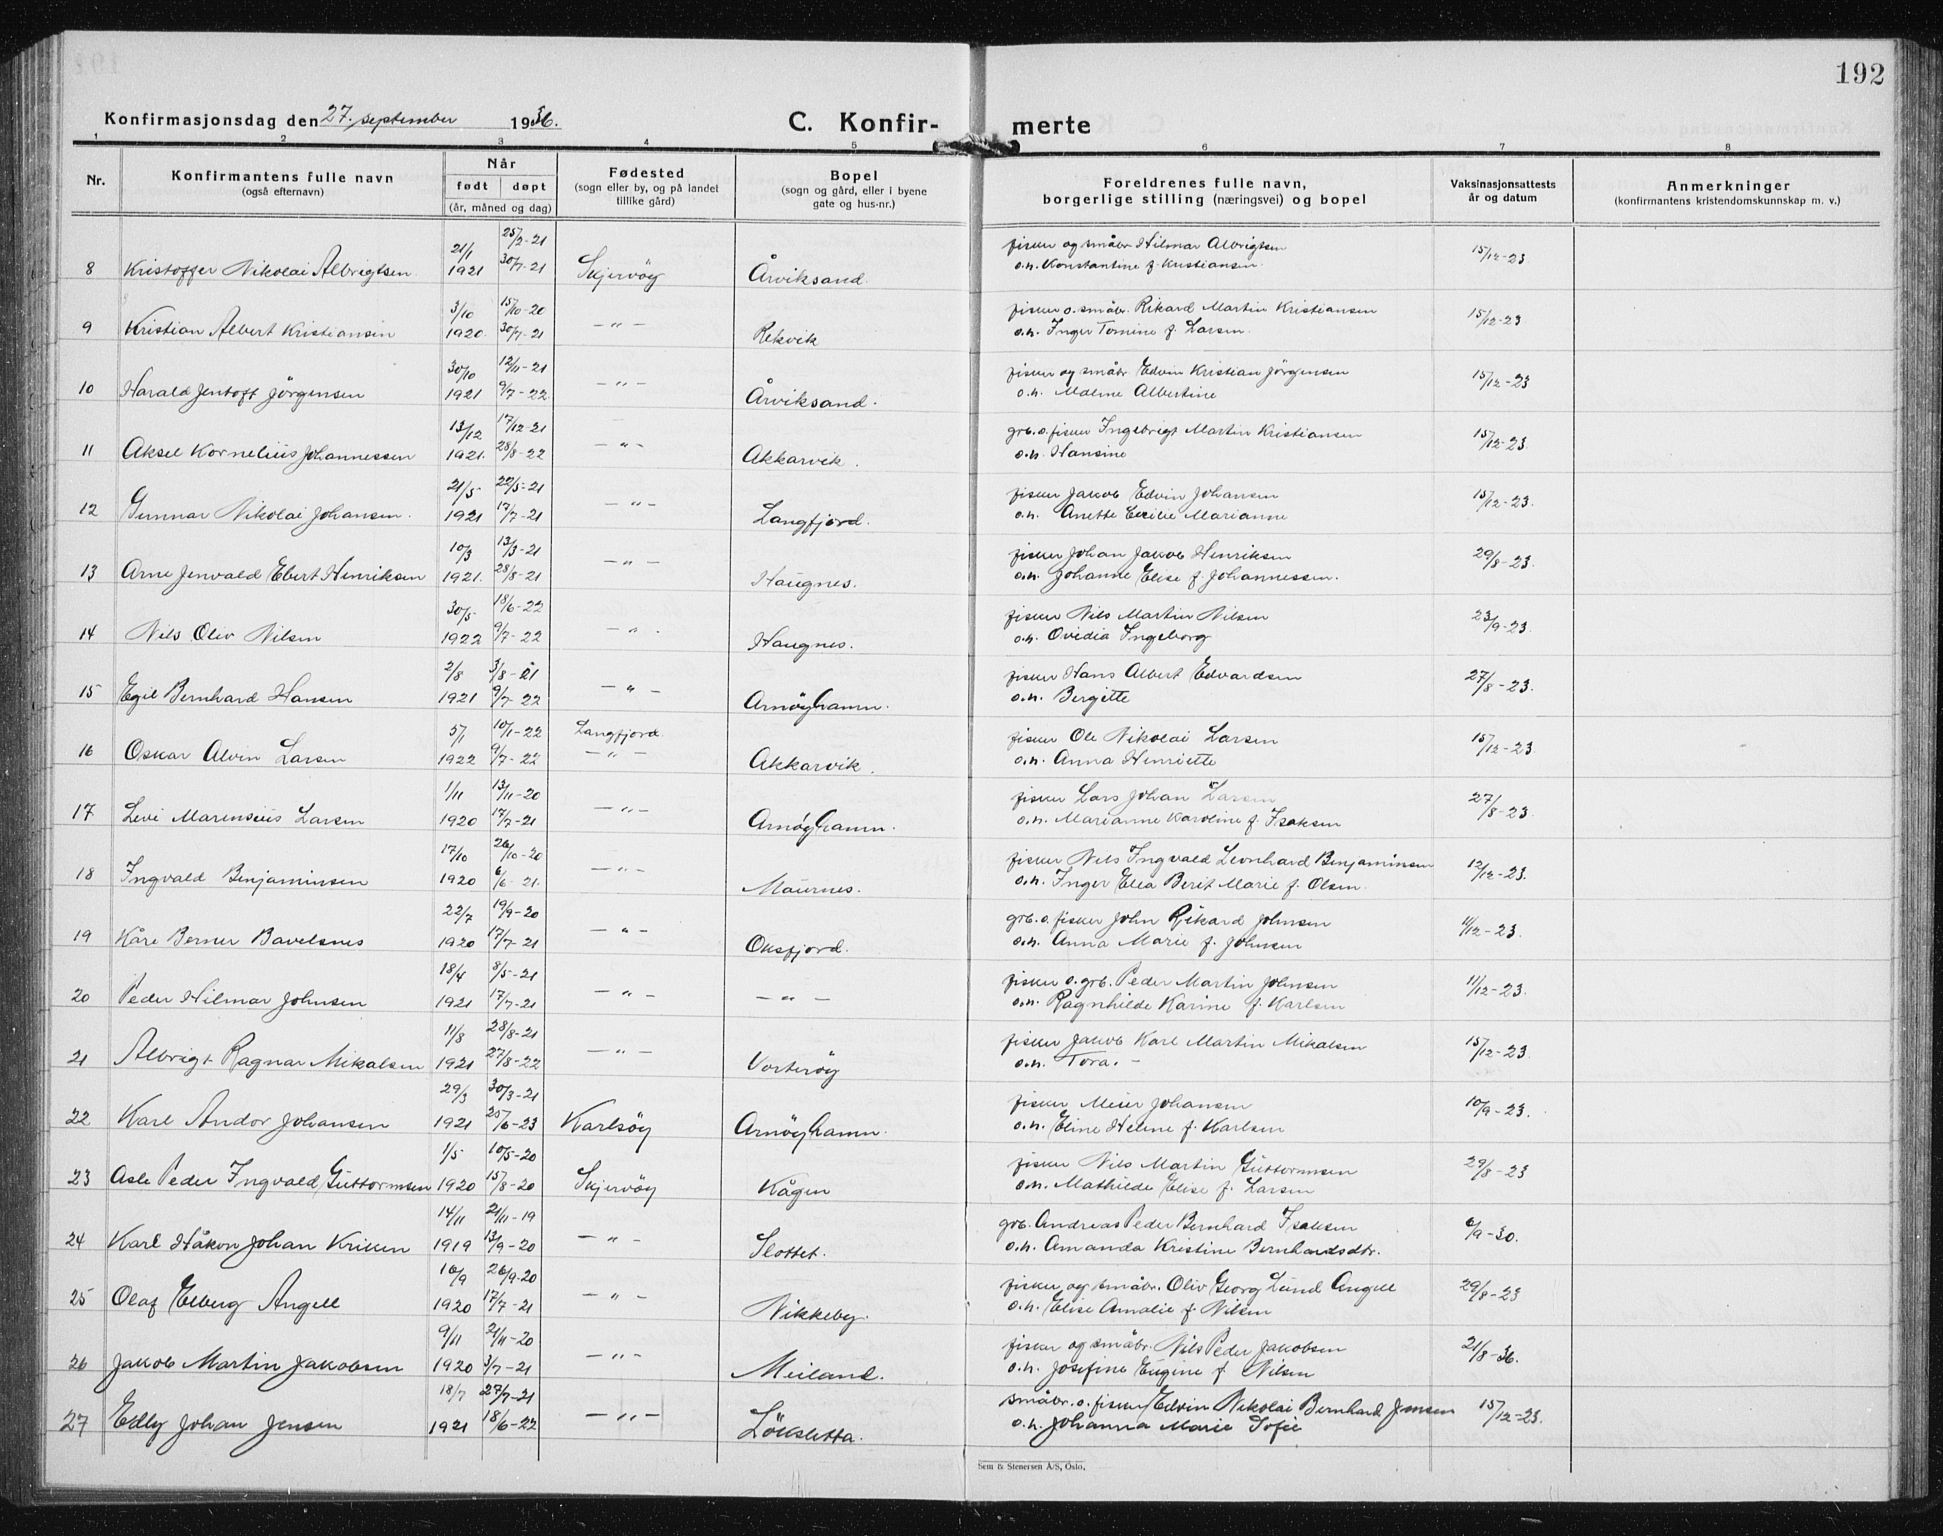 192
Konfirmasjonsdag den 27. september 1936.
C. Konfir-
merte
1 2 3 4 5 6 7 8
Nr.
Konfirmantens fulle navn
(også efternavn)
Når
født døpt
(år, måned og dag)
Fødested
(sogn eller by, og på landet
tillike gård)
Bopel
(sogn og gård, eller i byene
gate og hus-nr.)
Foreldrenes fulle navn,
borgerlige stilling (næringsvei) og bopel
Vaksinasjonsattests
år og datum
Anmerkninger
(konfirmantens kristendomskunnskap m. v.)
21/1 25/2-21 fisker og småbr. Hilmar Albrigtsen
8 Kristoffer Nikolai Albrigtsen 1921 30/7-21 Skjervöy Årviksand. o.h. Konstantine f. Kristiansen. 15/12-23.
3/10 15/10-20 fisker o. småbr. Rikard Martin Kristiansen
9 Kristian Albert Kristiansen 1920. 30/7-21 -"- Rekvik o.h. Inger Tomine f. Larsen. 15/12-23
30/10 12/11-21 fisker og småbr. Edvin Kristian Jörgensen
10 Harald Jentoft Jörgensen 1921 9/7-22. -"- Årviksand. o.h. Malene Albertine 15/12-23
13/12 17/12-21 grb. o. fisker Ingebrigt Martin Kristiansen
11 Aksel Kornelius Johannessen 1921. 28/8-22 -"- Akkarvik. o.h. Hansine 15/12-23.
21/5 22/5-21 fisker Jakob Edvin Johansen
12 Gunnar Nikolai Johansen. 1921 17/7-21 -"- Langfjord. o.h. Anette Cecilie Marianne 15/12-23.
10/3 13/3-21 fisker Johan Jakob Henriksen
13 Arne Jenvald Ebert Henriksen 1921. 28/8-21 -"- Haugnes. o.h. Johanne Elise f. Johannessen. 29/8-23.
30/5 18/6-22 fisker Nils Martin Nilsen
14 Nils Oliv Nilsen 1922 9/7-22 -"- Haugnes. o.h. Ovidia Ingeborg 23/9-23.
2/8 3/8-21 fisker Hans Albert Edvardsen
15 Egil Bernhard Hansen 1921 9/7-22 -"- Arnöyhamn. o.h. Bergitte 27/8-23.
5/1 10/1-22 Langfjord. fisker Ole Nikolai Larsen
16 Oskar Alvin Larsen 1922 9/7-22 -"- Akkarvik. o.h. Anna Henriette 15/12-23.
1/11 13/11-20 fisker Lars Johan Larsen
17 Levi Marensius Larsen 1920 17/7-21 -"- Arnöyhamn. o.h. Marianne Karoline f. Isaksen 27/8-23.
17/10 26/10-20 fisker Nils Ingvald Leonhard Benjaminsen
18 Ingvald Benjaminsen 1920 6/6-21. -"- Maurnes. o.h. Inger Elea Berit Marie f. Olsen. 12/12-23.
22/7 19/9-20 grb. o. fisker John Rikard Johnsen
19 Kåre Berner Bavelsnes 1920 17/7-21 -"- Oksfjord. o.h. Anna Marie f. Johnsen 11/12-23.
18/4 8/5-21 fisker o. grb. Peder Martin Johnsen
20 Peder Hilmar Johnsen 1921 17/7-21 -"- -"- o.h. Ragnhilde Karine f. Karlsen 11/12-23.
11/8 28/8-21 fisker Jakob Karl Martin Mikalsen
21 Albrigt Ragnar Mikalsen 1921 27/8-22 -"- Vorteröy o.h. Tora. - 15/12-23.
29/3 30/3-21 fisker Meier Johansen
22 Karl Andor Johansen 1921 25/6-23 Karlsöy Arnöyhamn. o.h. Eline Helene f. Karlsen 10/9-23.
1/5 10/5-20 fisker Nils Martin Guttormsen
23 Asle Peder Ingvald Guttormsen 1920 15/8-20 Skjervöy Kågen o.h. Mathilde Elise f. Larsen 29/8-23
14/11 21/11-19 grb. Andreas Peder Bernhard Isaksen
24 Karl Håkon Johan Kriken 1919 13/9-20 -"- Slottet. o.h. Amanda Kristine Bernhardsdtr. 6/9-30.
16/9 26/9-20 fisker og småbr. Oliv Georg Lund Angell
25 Olaf Elberg Angell 1920 17/7-21 -"- Nikkeby. o.h. Elise Amalie f. Nilsen 29/8-23
9/11 21/11-20 fisker og småbr. Nils Peder Jakobsen
26 Jakob Martin Jakobsen 1920 3/7-21 -"- Meiland. o.h. Josefine Eugine f. Nilsen 21/8-36.
18/7 27/7-21 småbr. o. fisker Edvin Nikolai Bernhard Jensen
27 Edly Johan Jensen 1921 18/6-22 -"- Lökseletta. o.h. Johanna Marie Sofie 15/12-23.
Sem & Stenersen A/S, Oslo.